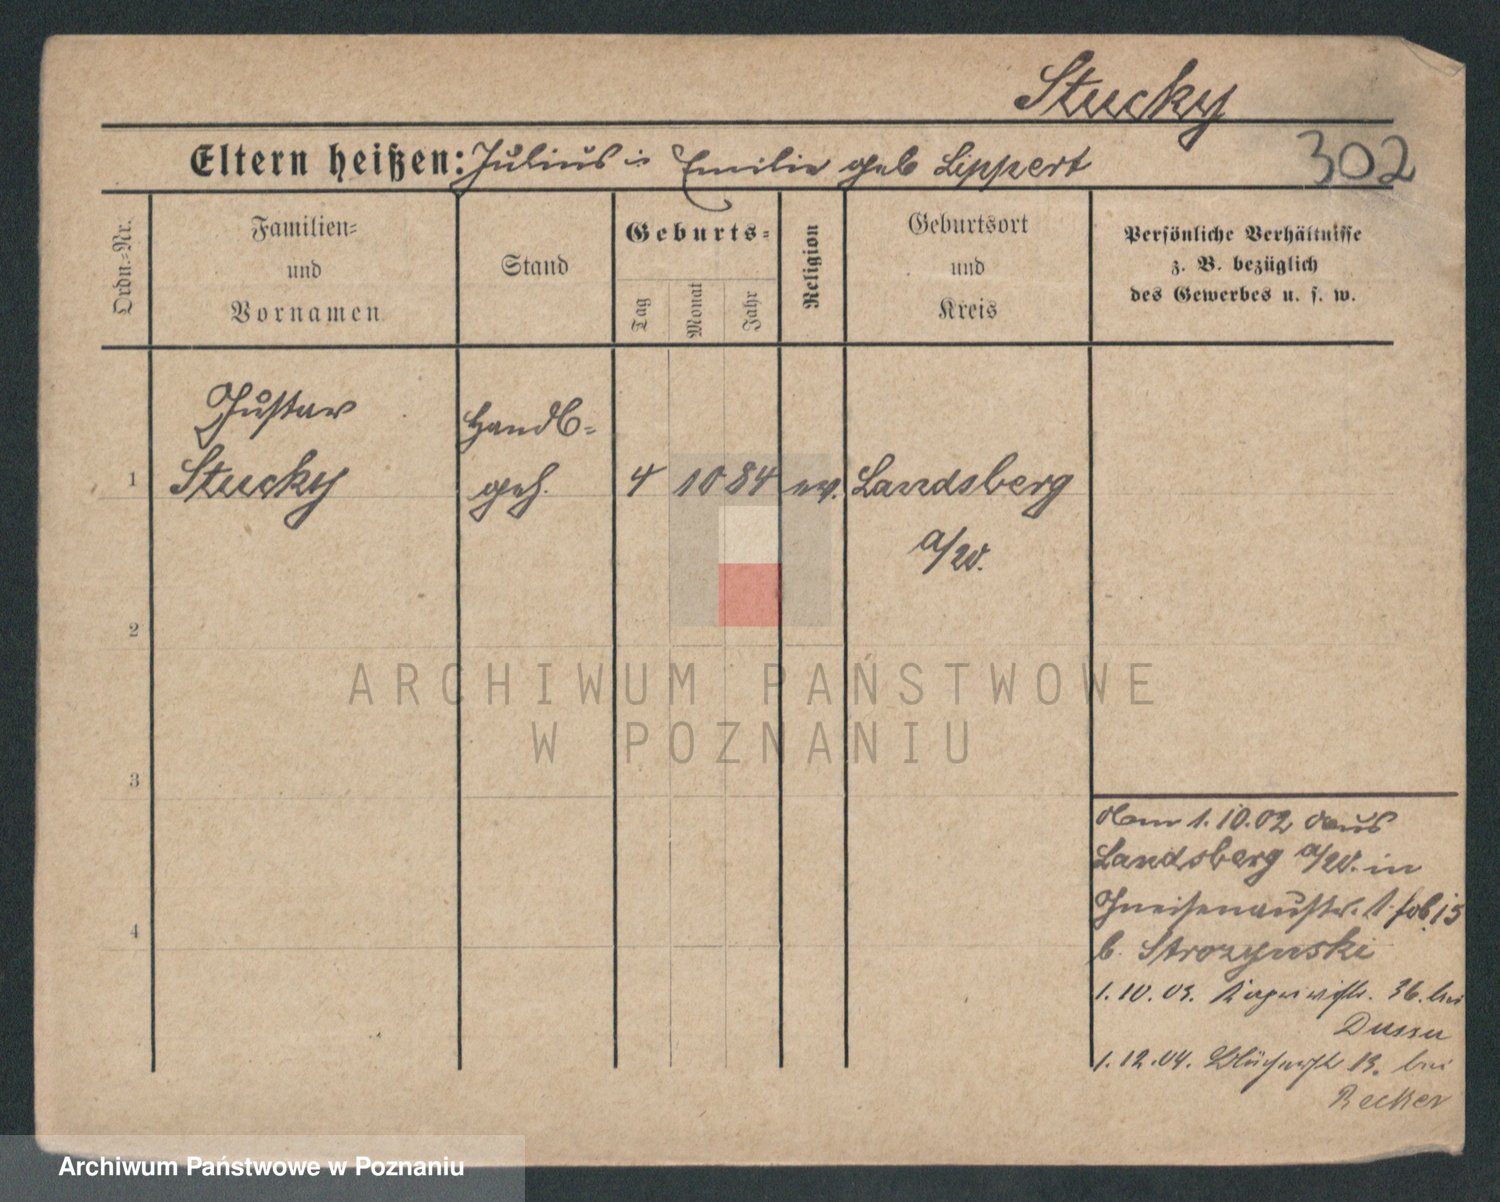 Stucky
302
Eltern heißen: Julius u Emilie geb Lippert
Ordn.-Nr.
Familien-
und
Vornamen
Stand
Geburts-
Tag
Monat
Jahr
Religion
Geburtsort
und
Kreis
Persönliche Verhältnisse
z. B. bezüglich
des Gewerbes u. s. w.
Gustav
Stucky
Handl-
geh.
1
4 10 84 ev. Landsberg
a/W.
2
3
4
1.10.02 aus
Landsberg a/W. in
Gneisenaustr. 1
b. Strozynski
1.10.03. 36. bei
1.12.04. Blücherstr 13. bei
Becker
ARCHIWUM PAŃSTWOWE
W POZNANIU
Archiwum Państwowe w Poznaniu